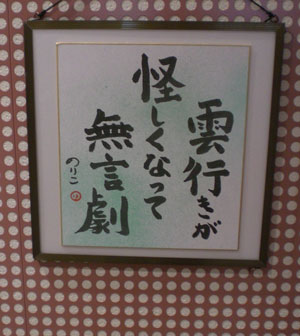 雲行きが
怪しくなって
無言劇
のりこ